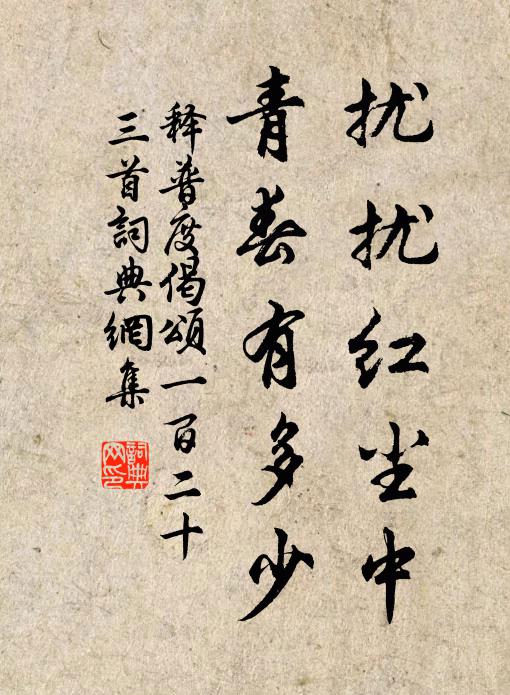 扰扰红尘中
青春有多少
释普度偈颂一百二十
三首詞典網集
詞典網印